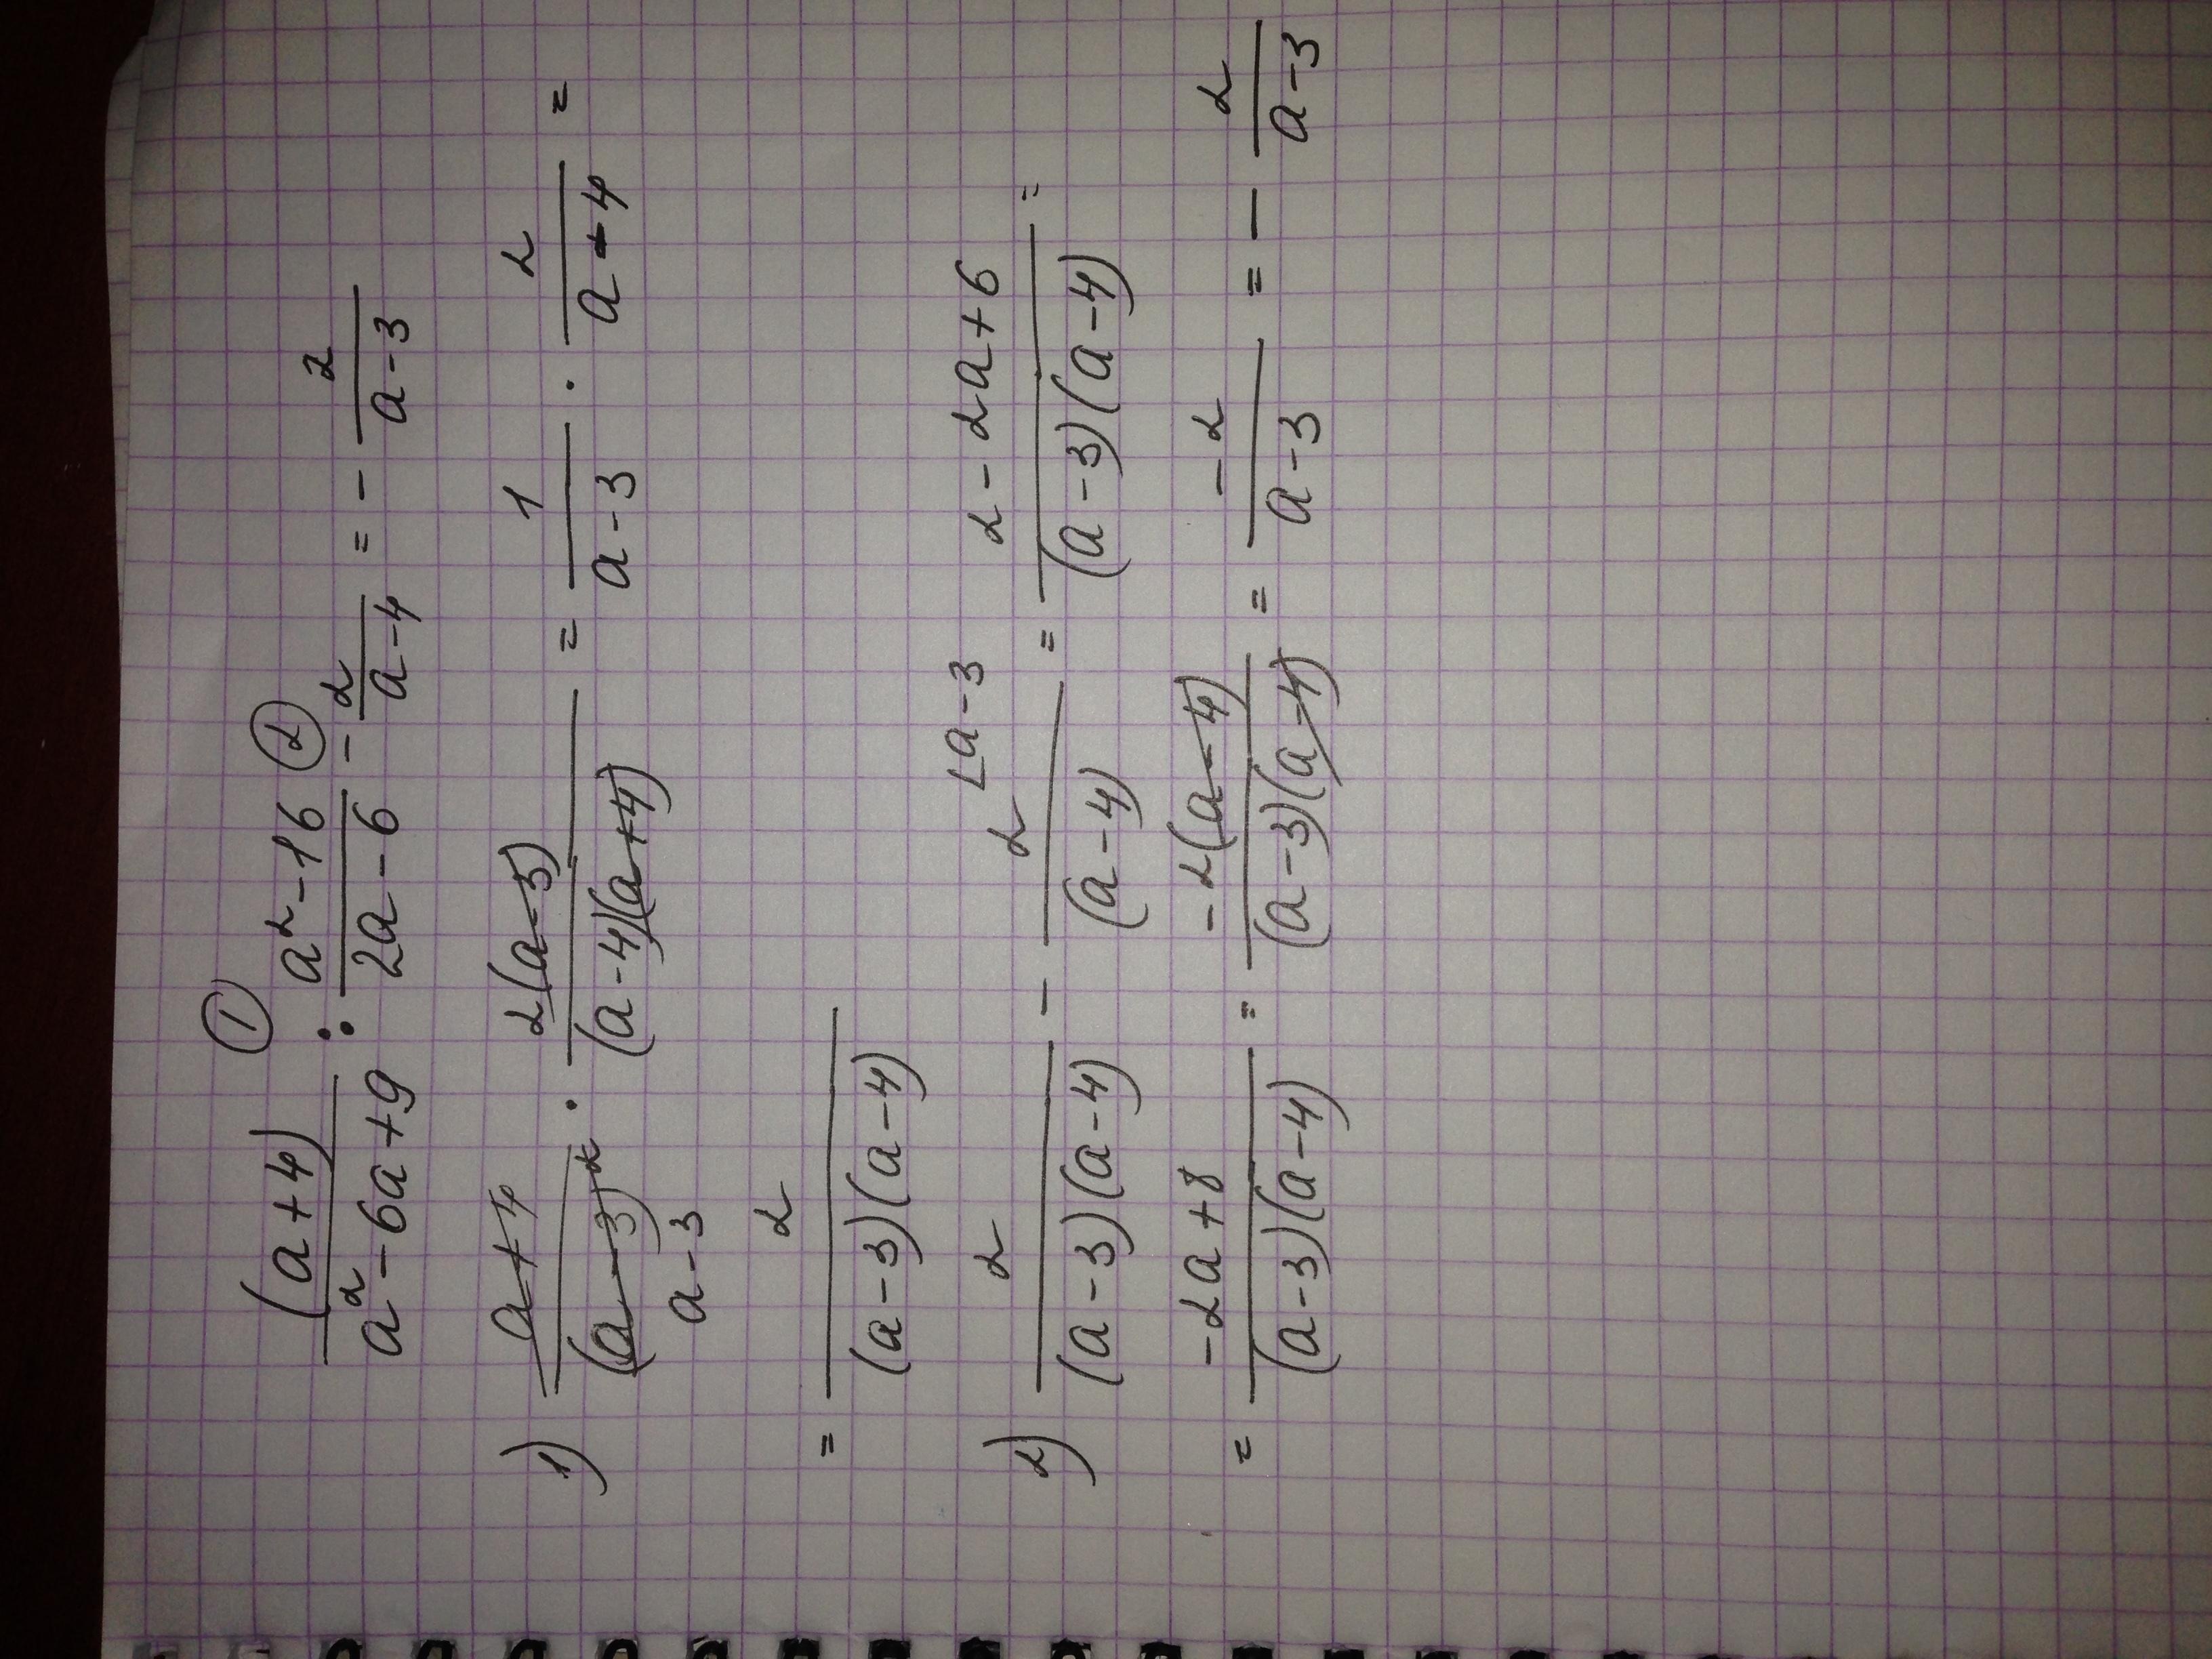 ① ②
(a+4)/(a²-6a+9) : (a²-16)/(2a-6) - 2/(a-4) = - 2/(a-3)
1) (a+4)/(a-3)² · 2(a-3)/((a-4)(a+4)) = 1/(a-3) · 2/(a-4) =
a-3
= 2/((a-3)(a-4))
2) 2/((a-3)(a-4)) - 2/(a-4) ∟a-3 = (2-2a+6)/((a-3)(a-4)) =
= (-2a+8)/((a-3)(a-4)) = -2(a-4)/((a-3)(a-4)) = -2/(a-3) = - 2/(a-3)